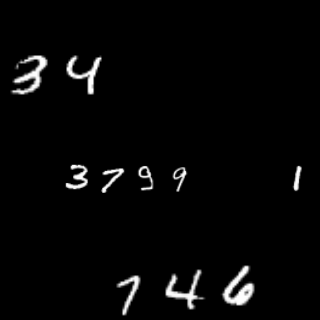 34
3799 1
146